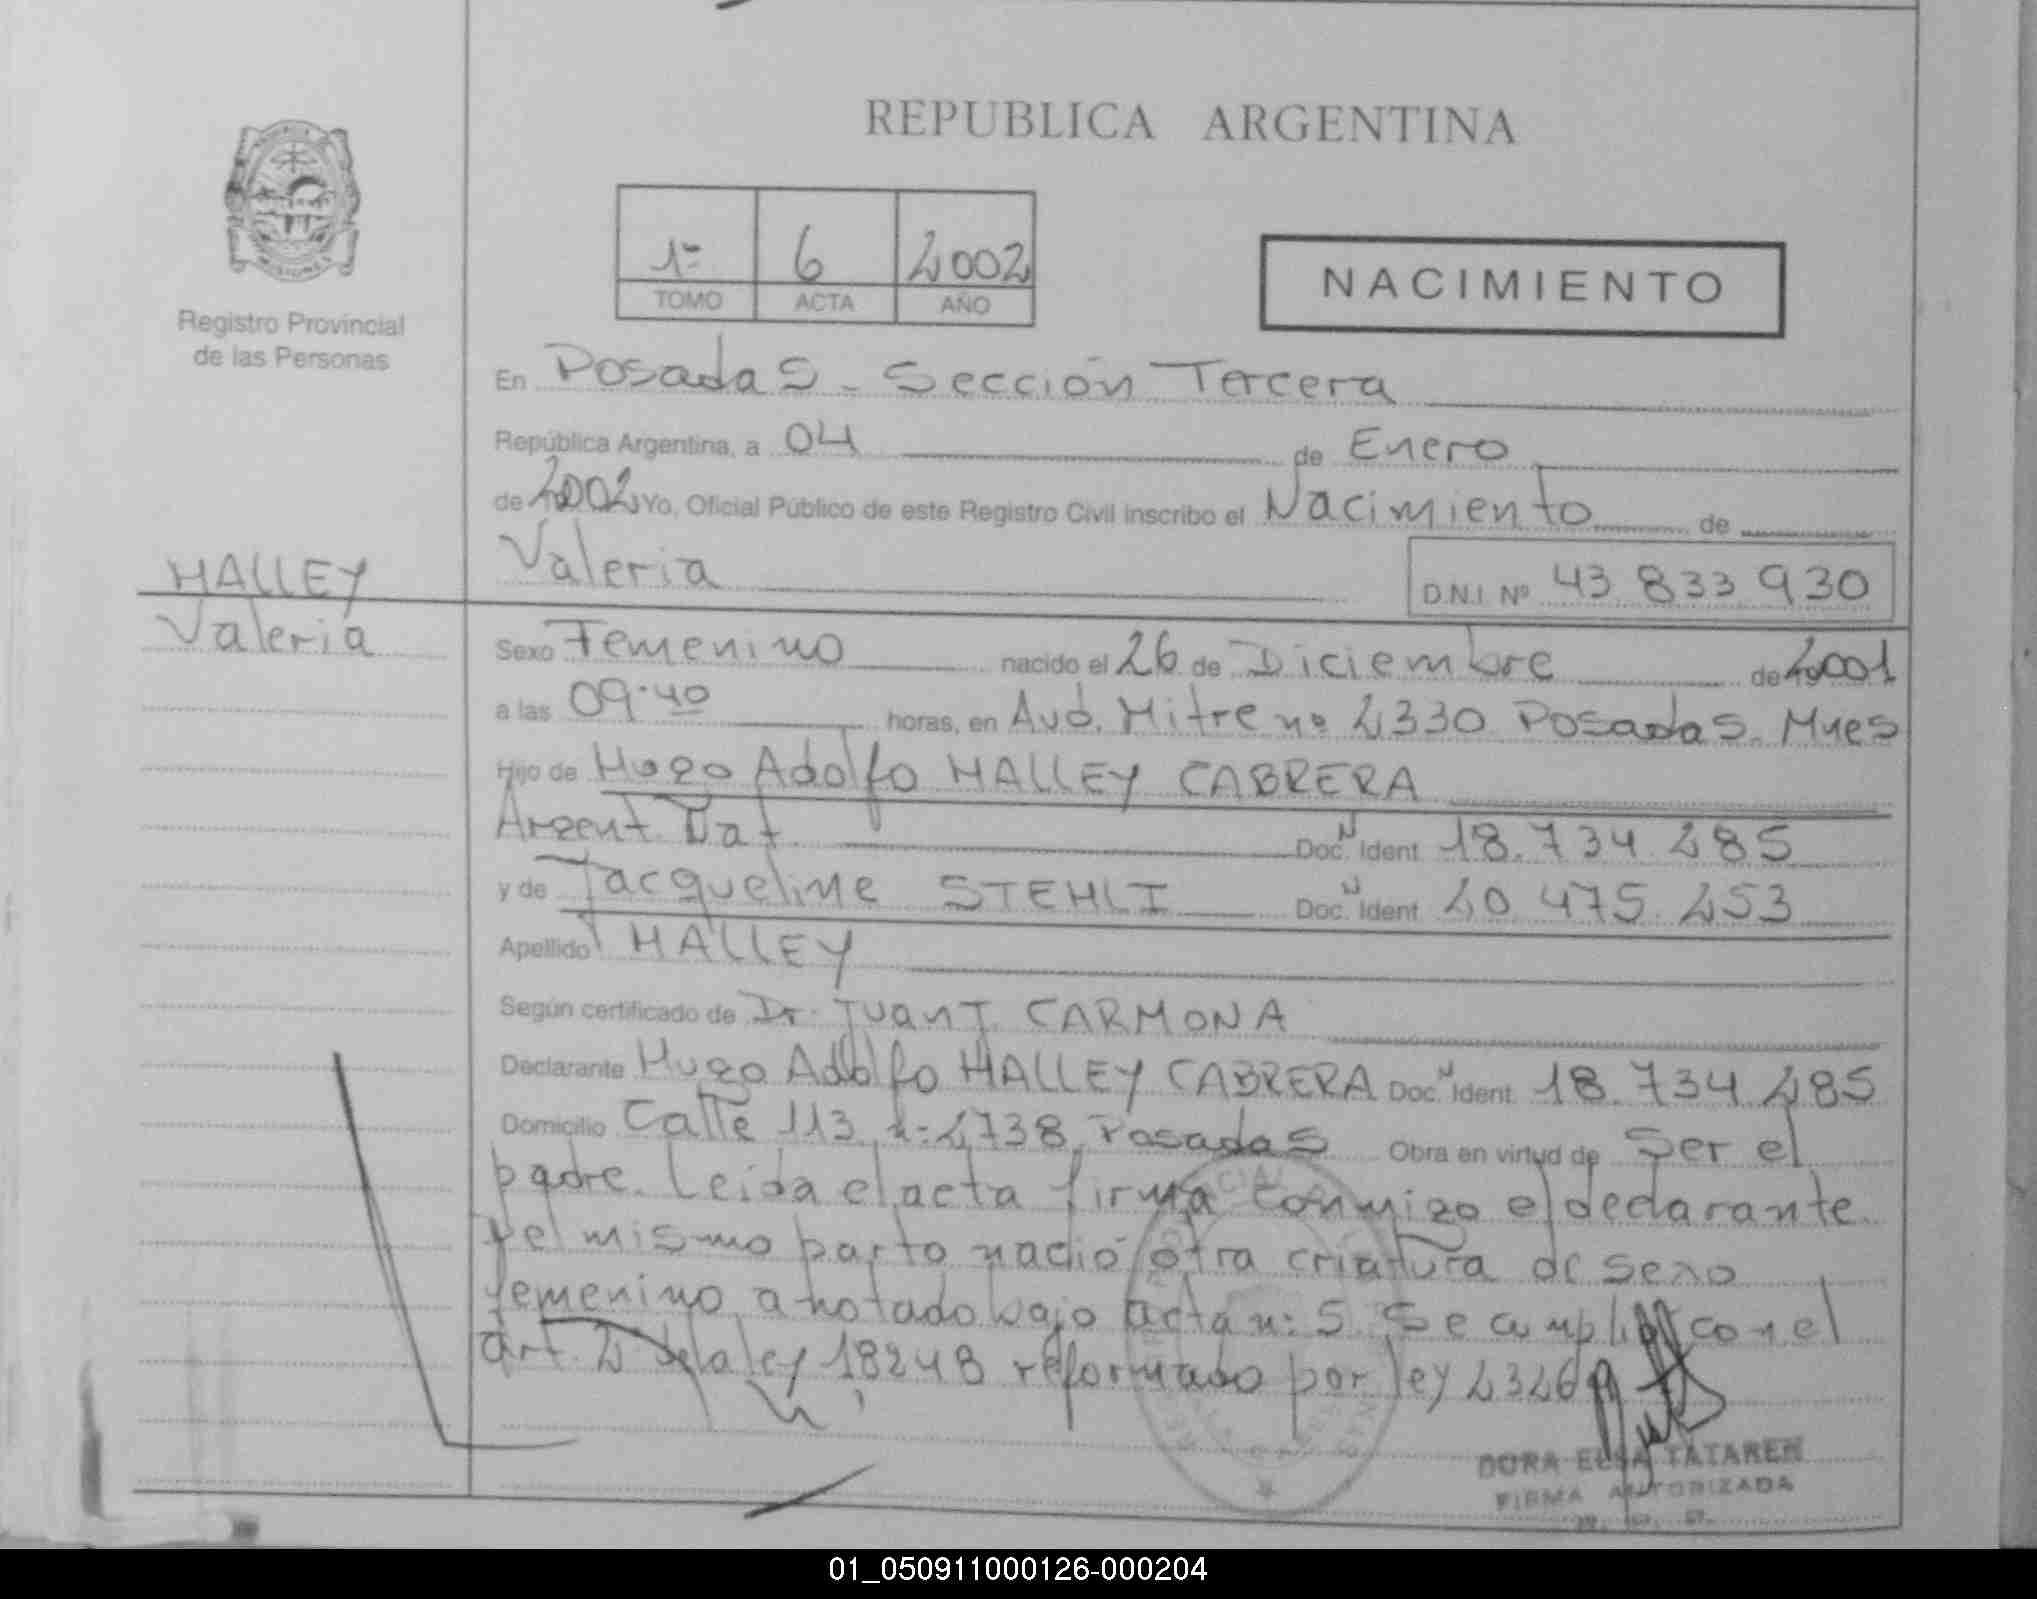 REPUBLICA ARGENTINA
1º 6 2002
TOMO ACTA AÑO
NACIMIENTO
MISIONES
Registro Provincial
de las Personas
En Posadas - Sección Tercera
República Argentina, a 04 de Enero
de 2002 Yo, Oficial Público de este Registro Civil inscribo el Nacimiento de
Valeria
D.N.I. Nº 43 833 930
HALLEY
Valeria
Sexo Femenino nacido el 26 de Diciembre de 2001
a las 09.40 horas, en Avd. Mitre nº 2330 Posadas. Mnes
Hijo de Hugo Adolfo HALLEY CABRERA
Argent. Nat. Doc. N Ident 18.734.285
y de Jacqueline STEHLI Doc. N Ident 20 475.253
Apellido HALLEY
Según certificado de Dr. Juan J. CARMONA
Declarante Hugo Adolfo HALLEY CABRERA Doc. N Ident. 18.734.285
Domicilio Calle 113 n: 2738, Posadas Obra en virtud de Ser el
padre. Leída el acta firma conmigo el declarante
del mismo parto nació otra criatura de sexo
femenino anotado bajo acta n: 5 Se cumplió con el
art. 2 de la ley 18248 reformado por ley
DORA ELSA TATAREN
FIRMA AUTORIZADA
01_050911000126-000204